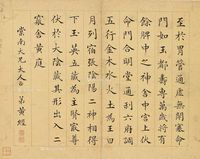 至於胃管通虛無閉塞命
門如玉都壽專萬歲將有
餘脾中之神舍中宮上伏
命門合明堂通利六府調
五行金木水火土為王日
月列宿張陰陽二神相得
下玉英五藏為主腎最尊
伏於大陰藏其形出入二
竅舍黃庭